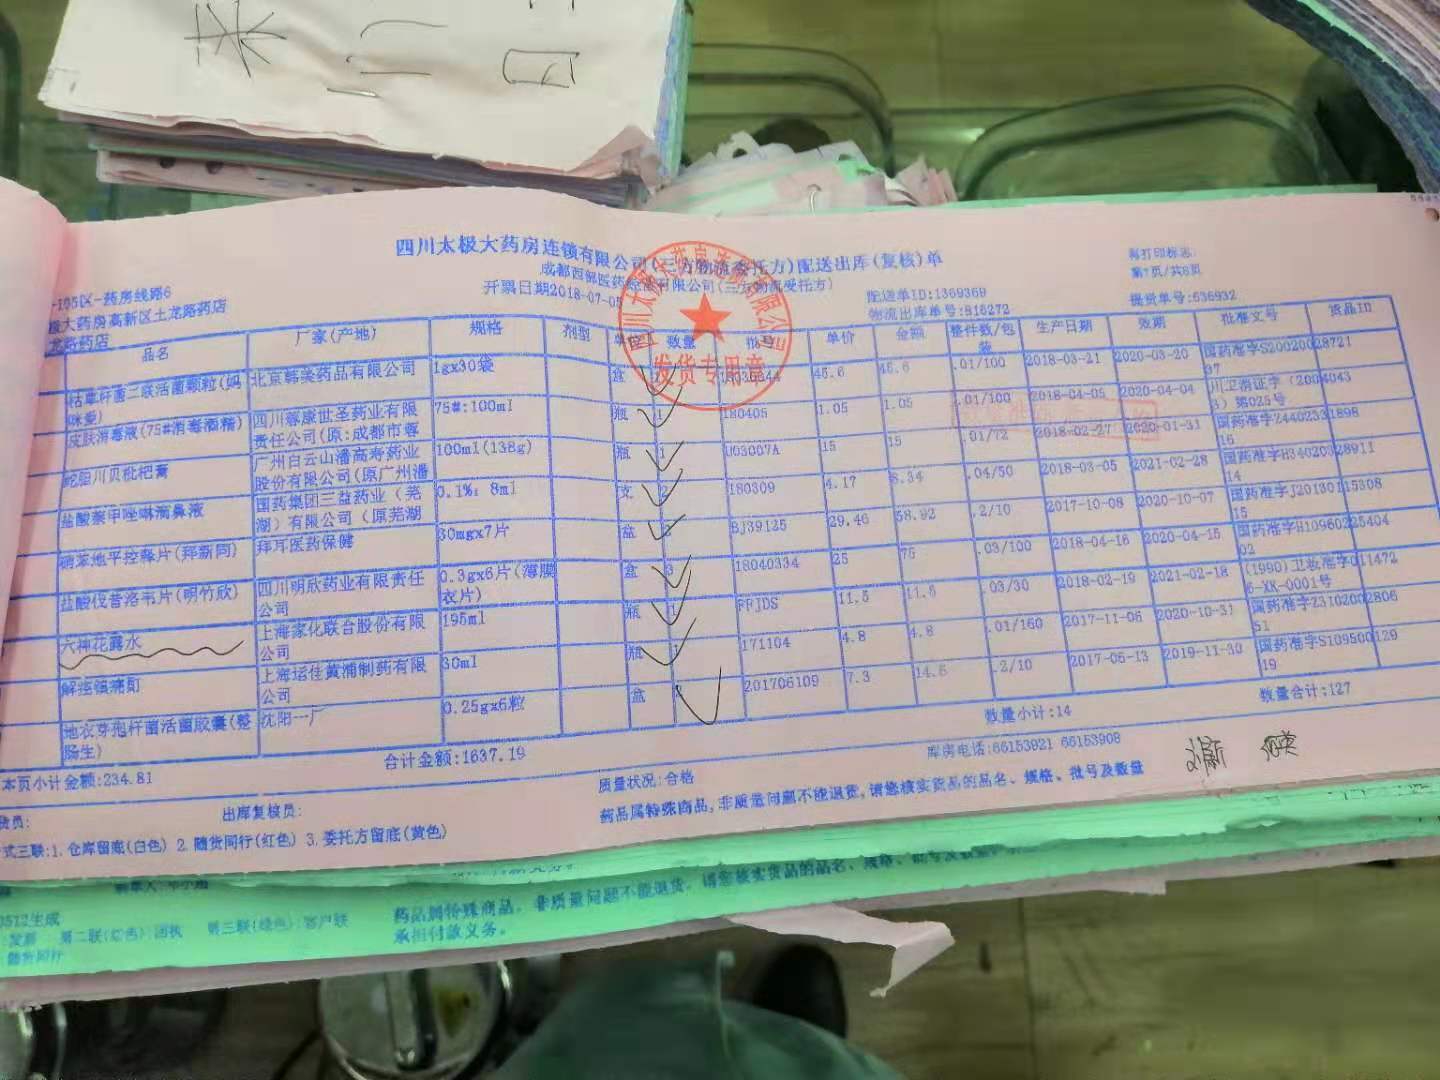 米 三 日
四川太极大药房连锁有限公司(三方物流委托方)配送出库(复核)单
再打印标志:
成都西部医药经营有限公司(三方物流受托方)
第7页/共8页
-105区-药房线路6
开票日期2018-07-05
配送单ID:1369369
提货单号:536932
极大药房高新区土龙路药店
物流出库单号:815272
龙路药店
品名 厂家(产地) 规格 剂型 单位 数量 批号 单价 金额 整件数/包装 生产日期 效期 批准文号 货品ID
枯草杆菌二联活菌颗粒(妈咪爱) 北京韩美药品有限公司 1gx30袋 盒 45.6 45.6 .01/100 2018-03-21 2020-03-20 国药准字S20020037 28721
皮肤消毒液(75#消毒酒精) 四川蓉康世圣药业有限责任公司(原:成都市蓉 75#:100ml 瓶 1 180405 1.05 1.05 .01/100 2018-04-05 2020-04-04 川卫消证字(2004)第025号
蛇胆川贝枇杷膏 广州白云山潘高寿药业股份有限公司(原广州潘 100ml(138g) 瓶 1 U03007A 15 15 .01/72 2018-02-27 2020-01-31 国药准字Z44023316 1898
盐酸萘甲唑啉滴鼻液 国药集团三益药业(芜湖)有限公司(原芜湖 0.1%:8ml 支 2 180309 4.17 8.34 .04/50 2018-03-05 2021-02-28 国药准字H34020314 28911
硝苯地平控释片(拜新同) 拜耳医药保健 30mgx7片 盒 2 BJ39125 29.46 58.92 .2/10 2017-10-08 2020-10-07 国药准字J20130115 5308
盐酸伐昔洛韦片(明竹欣) 四川明欣药业有限责任公司 0.3gx6片(薄膜衣片) 盒 3 18040334 25 75 .03/100 2018-04-16 2020-04-15 国药准字H10960202 25404
六神花露水 上海家化联合股份有限公司 195ml 瓶 1 PPJDS 11.5 11.5 .03/30 2018-02-19 2021-02-18 (1990)卫妆准字06-XK-0001号 11472
解痉镇痛酊 上海运佳黄浦制药有限公司 30ml 瓶 1 171104 4.8 4.8 .01/160 2017-11-06 2020-10-31 国药准字Z31020051 2806
地衣芽孢杆菌活菌胶囊(整肠生) 沈阳一厂 0.25gx6粒 盒 201706109 7.3 14.6 .2/10 2017-05-13 2019-11-30 国药准字S10950019 0129
四川太极大药房连锁有限公司
发货专用章
数量小计:14
数量合计:127
本页小计金额:234.81
合计金额:1637.19
质量状况:合格
库房电话:66153921 66153908
货员:
出库复核员:
药品属特殊商品,非质量问题不能退货,请您核实货品的品名、规格、批号及数量
式三联:1.仓库留底(白色) 2.随货同行(红色) 3.委托方留底(黄色)
0512生成
:发票 第二联(红色):回执 第三联(绿色):客户联
随货同行
药品属特殊商品,非质量问题不能退货,请您核实货品的品名、规格、批号及数量
承担付款义务。